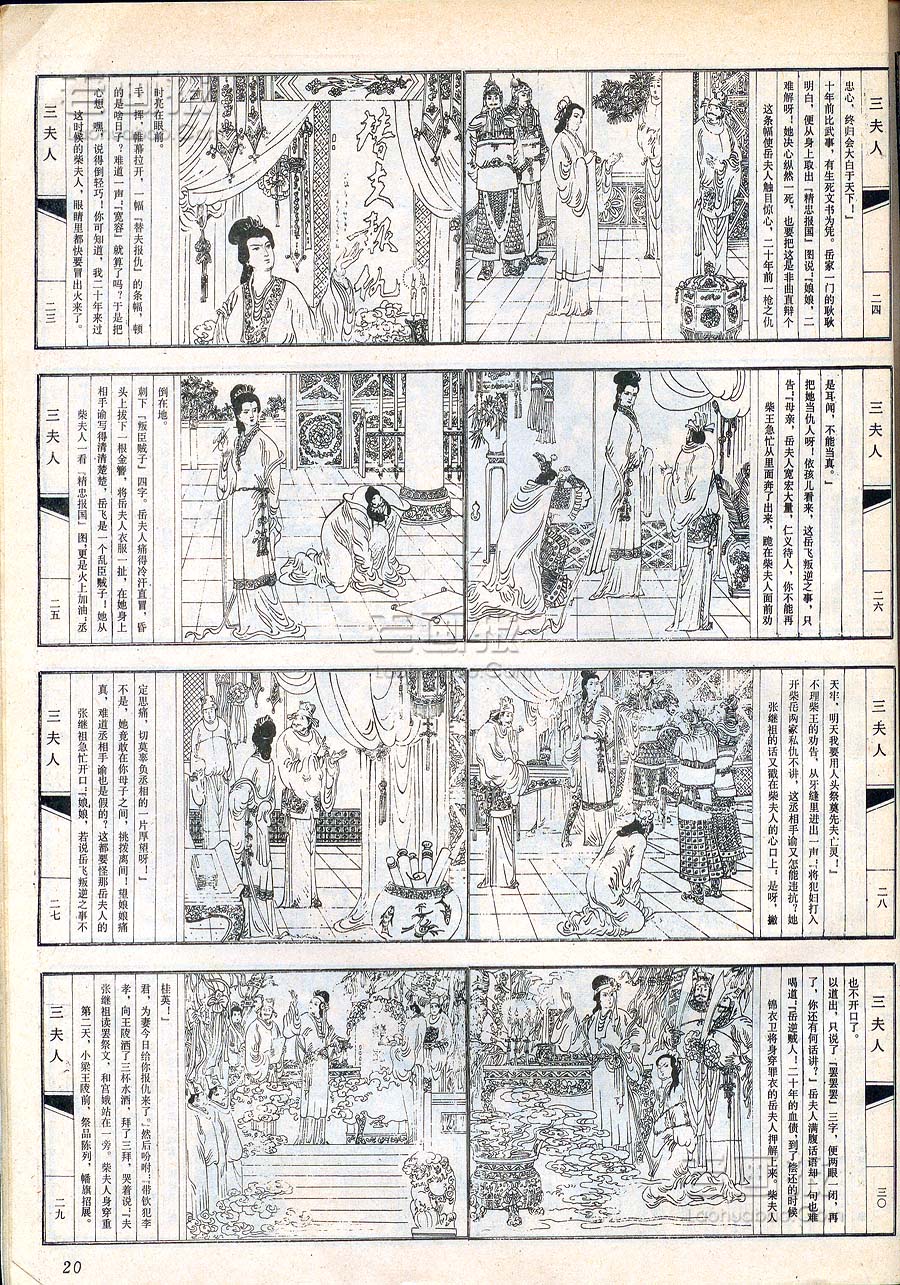 三夫人
二三
这时候的柴夫人，眼睛里都快要冒出火来了。
心想，嘿，说得倒轻巧！你可知道，我二十年来过
的是啥日子？难道一声『宽容』就算了吗？于是把
手一挥，帷幕拉开，一幅『替夫报仇』的条幅，顿
时亮在眼前。
替夫报仇
这条幅使岳夫人触目惊心，二十年前一枪之仇
难解呀！她决心纵然一死，也要把这是非曲直辩个
明白，便从身上取出『精忠报国』图说：『娘娘，二
十年前比武事，有生死文书为凭。岳家一门的耿耿
忠心，终归会大白于天下！』
三夫人
二四
三夫人
二五
柴夫人一看『精忠报国』图，更是火上加油：丞
相手谕写得清清楚楚，岳飞是一个乱臣贼子！她从
头上拔下一根金簪，将岳夫人衣服一扯，在她身上
刺下『叛臣贼子』四字。岳夫人痛得冷汗直冒，昏
倒在地。
柴王急忙从里面奔了出来，跪在柴夫人面前劝
告：『母亲，岳夫人宽宏大量，仁义待人，你不能再
把她当仇人呀！依孩儿看来，这岳飞叛逆之事，只
是耳闻，不能当真。』
三夫人
二六
三夫人
二七
张继祖急忙开口：『娘娘，若说岳飞叛逆之事不
真，难道丞相手谕也是假的？这都要怪那岳夫人的
不是，她竟敢在你母子之间，挑拨离间！望娘娘痛
定思痛，切莫辜负丞相的一片厚望呀！』
张继祖的话又戳在柴夫人的心口上：是呀，撇
开柴岳两家私仇不讲，这丞相手谕又怎能违抗？她
不理柴王的劝告，从牙缝里迸出一声：『将犯妇打入
天牢，明天我要用人头祭奠先夫亡灵！』
三夫人
二八
三夫人
二九
第二天，小梁王陵前，祭品陈列，幡旗招展。
张继祖读罢祭文，和宫娥站在一旁。柴夫人身穿重
孝，向王陵洒了三杯水酒，拜了三拜，哭着说：『夫
君，为妻今日给你报仇来了。』然后吩咐：『带钦犯李
桂英！』
锦衣卫将身穿罪衣的岳夫人押解上来。柴夫人
喝道：『岳逆贼人！二十年的血债，到了偿还的时候
了，你还有何话讲？』岳夫人满腹话语却一句也难
以道出，只说了『罢罢罢』三字，便两眼一闭，再
也不开口了。
三夫人
三〇
20